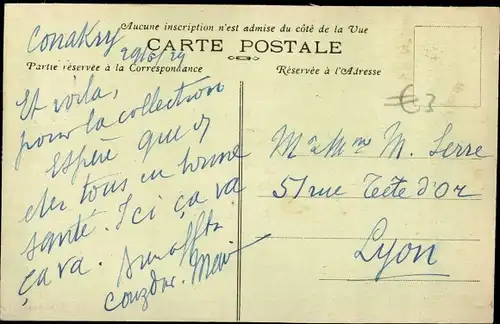 Aucune inscription n'est admise du côté de la Vue
CARTE POSTALE
Partie réservée à la Correspondance
Réservée à l'Adresse
Conakry
29/6/29
€ 3
Et voila,
pour la collection
Espère que
chez tous en bonne
santé. Ici ça va
ça va.
M. Serre
51 rue Tête d'Or
Lyon